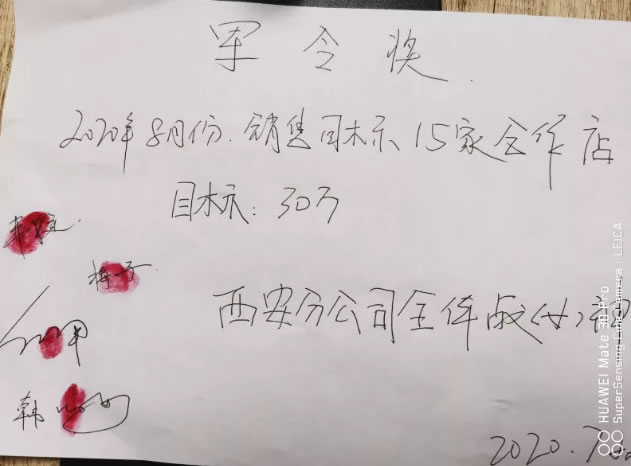 军令奖.
2020年8月份.销售目标、15家合作店
目标：30万
梅子
西安分公司全体
韩
2020.7
HUAWEI Mate 30 Pro
SuperSensing Cine Camera | LEICA